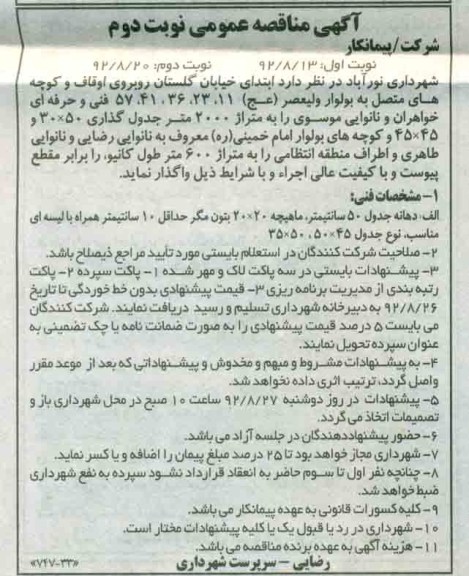 آگهی مناقصه عمومی نوبت دوم
شرکت/پیمانکار
نوبت اول: ۹۲/۸/۱۳ نوبت دوم: ۹۲/۸/۲۰
شهرداری نورآباد در نظر دارد ابتدای خیابان گلستان روبروی اوقاف و کوچه
های متصل به بولوار ولیعصر (عج) ۱۱، ۲۳، ۳۶، ۴۱، ۵۷ فنی و حرفه ای
خواهران و نانوایی موسوی را به متراژ ۲۰۰۰ متر جدول گذاری ۵۰×۳۰ و
۴۵×۴۵ و کوچه های بولوار امام خمینی(ره) معروف به نانوایی رضایی و نانوایی
طاهری و اطراف منطقه انتظامی را به متراژ ۶۰۰ متر طول کانیو، را برابر مقطع
پیوست و با کیفیت عالی اجراء و با شرایط ذیل واگذار نماید.
۱- مشخصات فنی:
الف: دهانه جدول ۵۰ سانتیمتر، ماهیچه ۲۰×۲۰ بتون مگر حداقل ۱۰ سانتیمتر همراه با لیسه ای
مناسب، نوع جدول ۴۵×۵۰ ، ۵۰×۳۵
۲- صلاحیت شرکت کنندگان در استعلام بایستی مورد تأیید مراجع ذیصلاح باشد.
۳- پیشنهادات بایستی در سه پاکت لاک و مهر شده ۱- پاکت سپرده ۲- پاکت
رتبه بندی از مدیریت برنامه ریزی ۳- قیمت پیشنهادی بدون خط خوردگی تا تاریخ
۹۲/۸/۲۶ به دبیرخانه شهرداری تسلیم و رسید دریافت نمایند. شرکت کنندگان
می بایست ۵ درصد قیمت پیشنهادی را به صورت ضمانت نامه یا چک تضمینی به
عنوان سپرده تحویل نمایند.
۴- به پیشنهادات مشروط و مبهم و مخدوش و پیشنهاداتی که بعد از موعد مقرر
واصل گردد، ترتیب اثری داده نخواهد شد.
۵- پیشنهادات در روز دوشنبه ۹۲/۸/۲۷ ساعت ۱۰ صبح در محل شهرداری باز و
تصمیمات اتخاذ می گردد.
۶- حضور پیشنهاددهندگان در جلسه آزاد می باشد.
۷- شهرداری مجاز خواهد بود تا ۲۵ درصد مبلغ پیمان را اضافه و یا کسر نماید.
۸- چنانچه نفر اول تا سوم حاضر به انعقاد قرارداد نشود سپرده به نفع شهرداری
ضبط خواهد شد.
۹- کلیه کسورات قانونی به عهده پیمانکار می باشد.
۱۰- شهرداری در رد یا قبول یک یا کلیه پیشنهادات مختار است.
۱۱- هزینه آگهی به عهده برنده مناقصه می باشد.
رضایی - سرپرست شهرداری
«۷۴۷-۳۳»